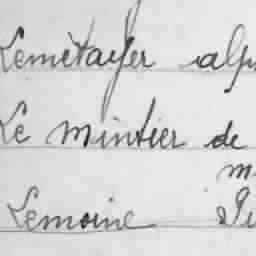 Lemétayer alp
Le mintier de
m
Lemoine